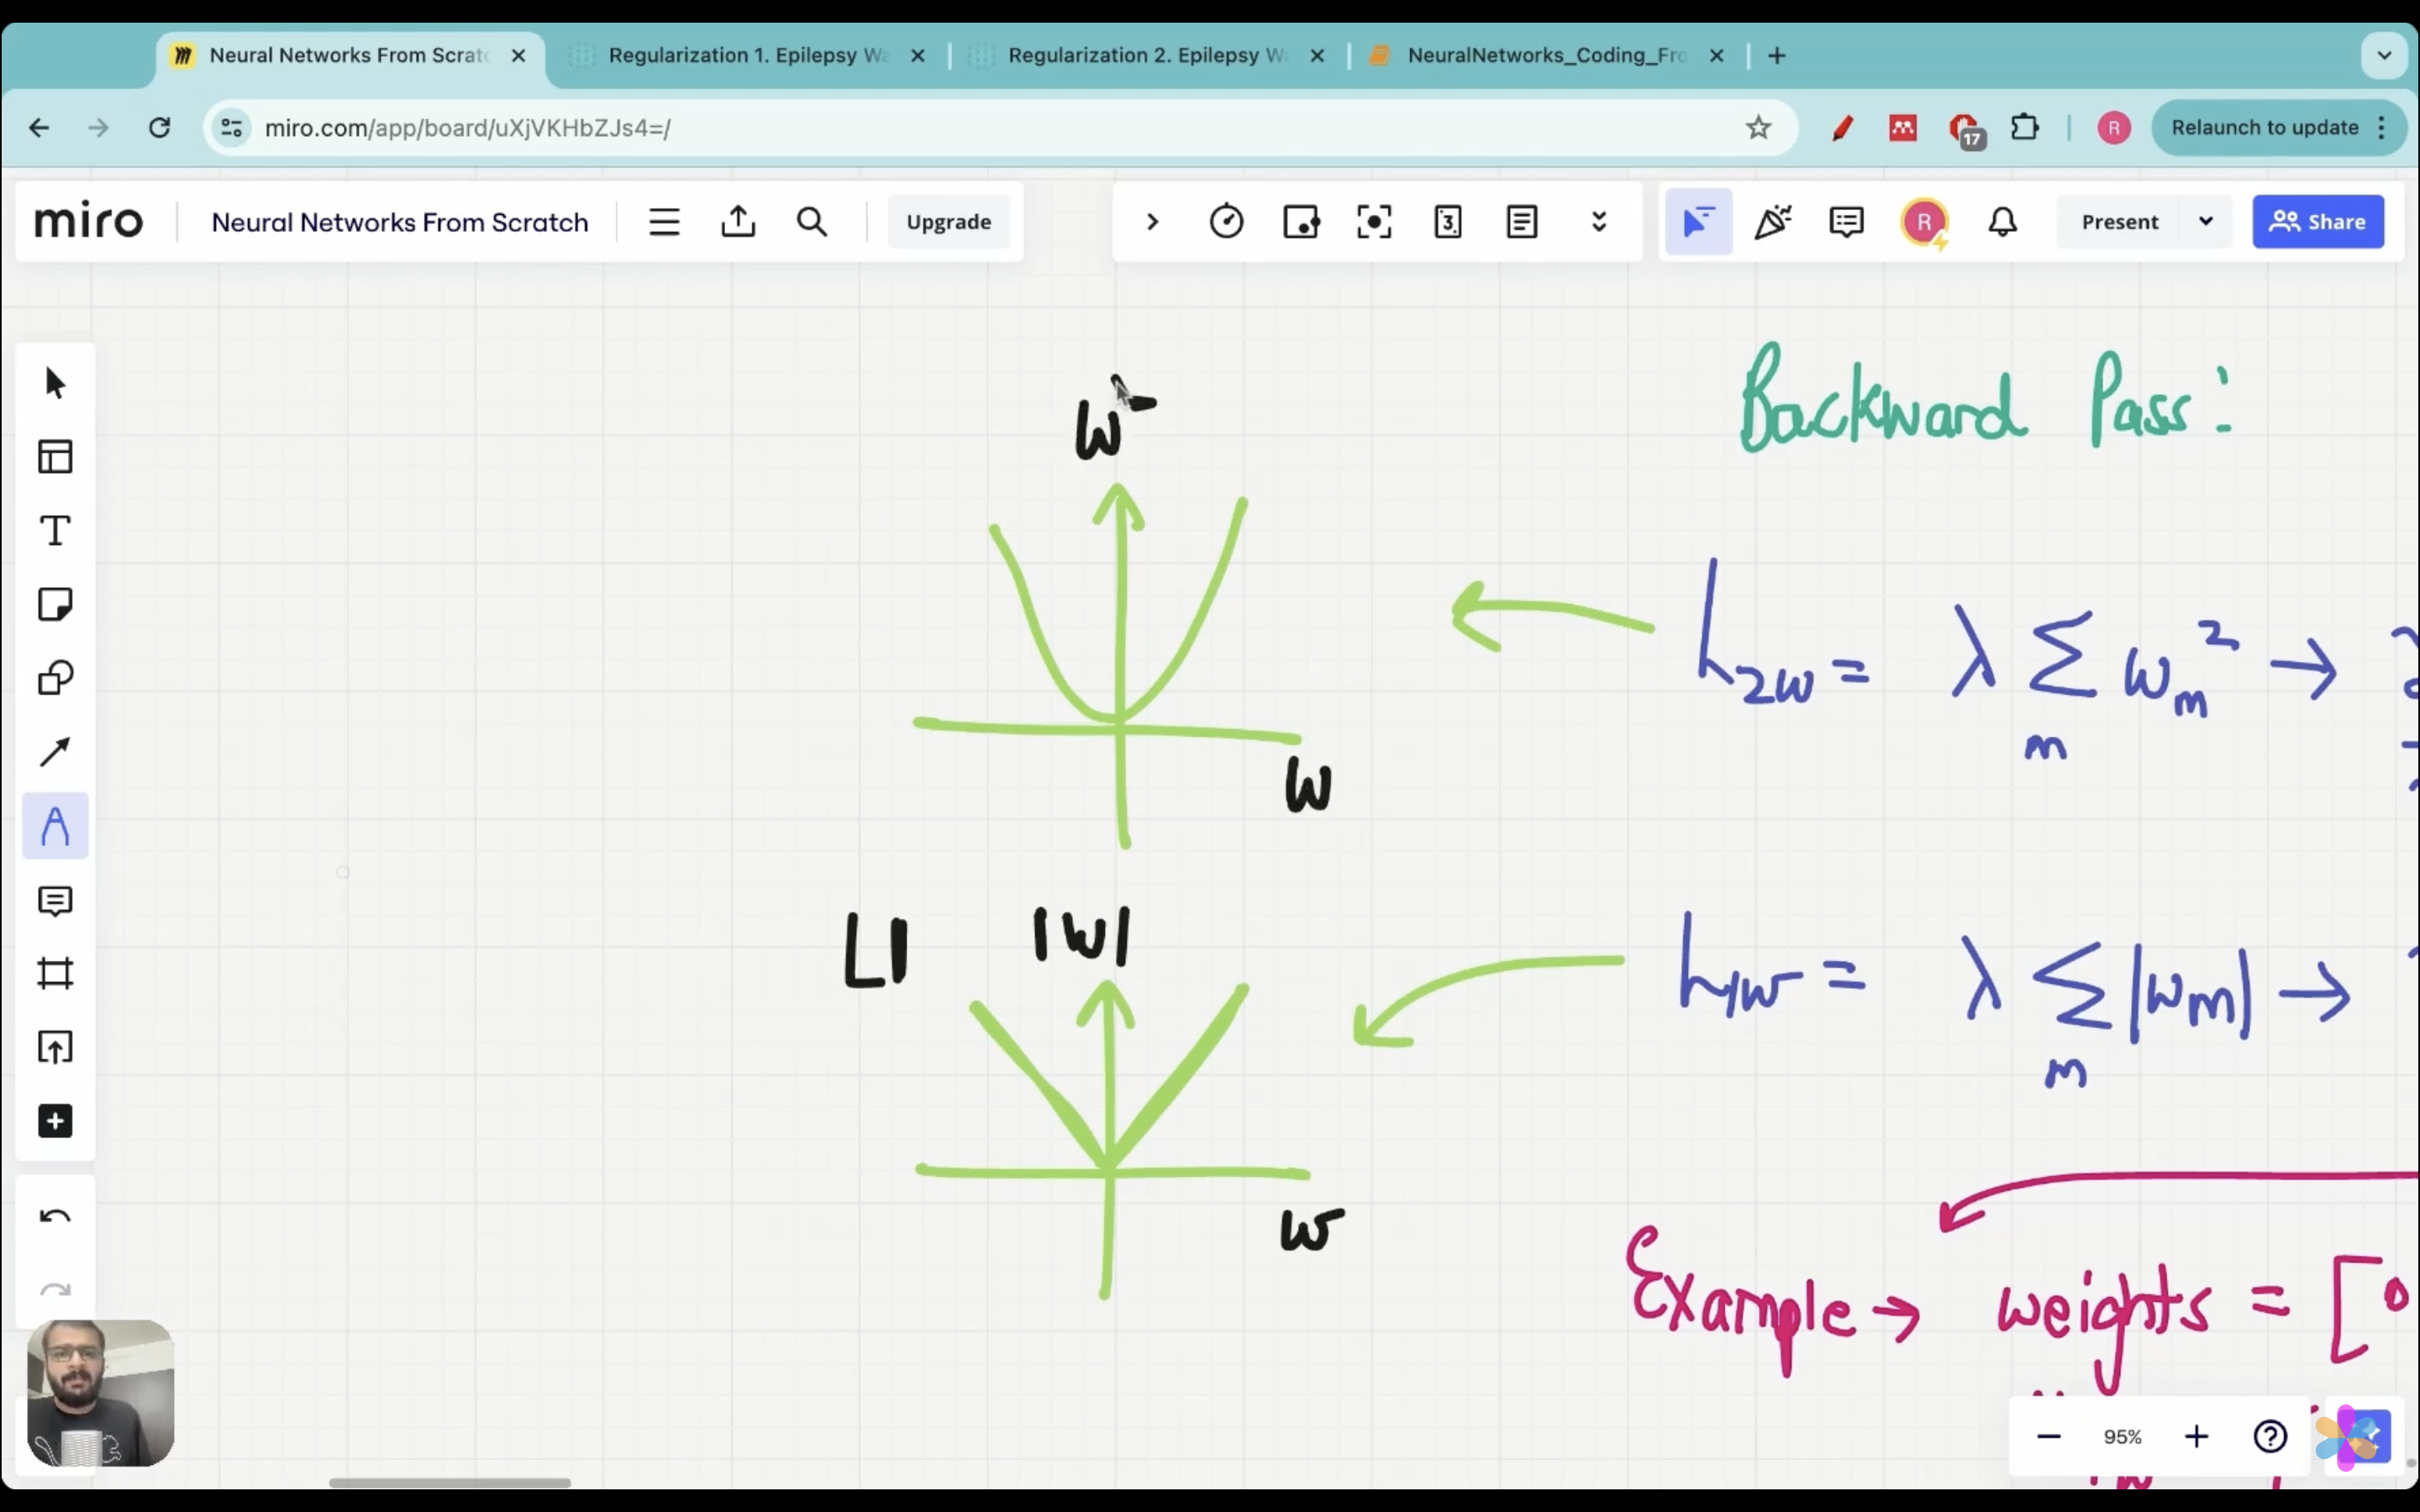 Neural Networks From Scratc
Regularization 1. Epilepsy Wa
Regularization 2. Epilepsy Wa
NeuralNetworks_Coding_Fro
miro.com/app/board/uXjVKHbZJs4=/
17
R
Relaunch to update
miro
Neural Networks From Scratch
Upgrade
3
R
Present
Share
Backward Pass:
w²
L2w = λ Σm wm² →
w
L1
|w|
L1w = λ Σm |wm| →
w
Example → weights = [0
95%